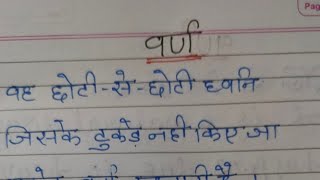 Pag
वर्ण
वह छोटी-से-छोटी ध्वनि
जिसके टुकड़े नही किए जा